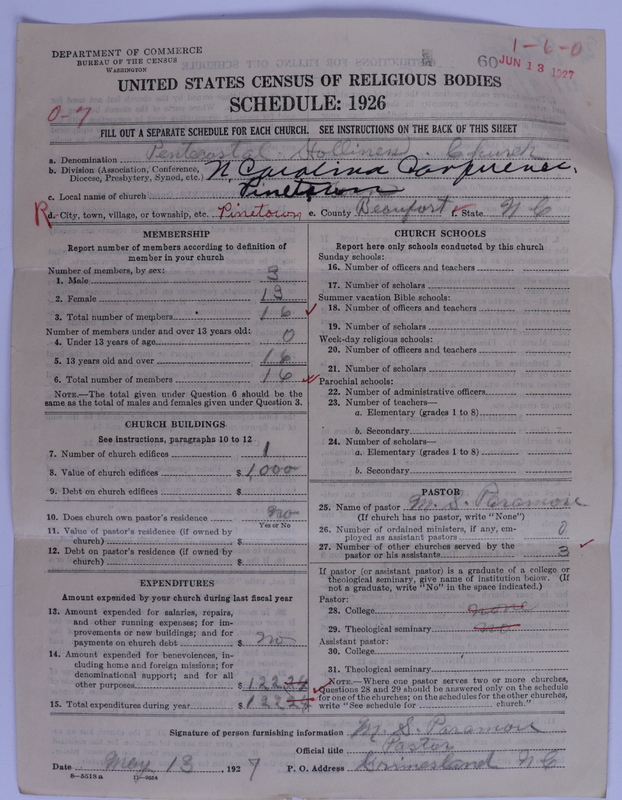 DEPARTMENT OF COMMERCE
BUREAU OF THE CENSUS
WASHINGTON
1-6-0
60
JUN 13 1927
UNITED STATES CENSUS OF RELIGIOUS BODIES
SCHEDULE: 1926
0-7
FILL OUT A SEPARATE SCHEDULE FOR EACH CHURCH. SEE INSTRUCTIONS ON THE BACK OF THIS SHEET
a. Denomination Pentecostal Holliness Church
b. Division (Association, Conference, Diocese, Presbytery, Synod, etc.) N. Carolina Conference
c. Local name of church Pinetown
R d. City, town, village, or township, etc. Pinetown e. County Beaufort f. State N C
MEMBERSHIP
Report number of members according to definition of
member in your church
Number of members, by sex:
1. Male 3
2. Female 13
3. Total number of members 16
Number of members under and over 13 years old:
4. Under 13 years of age 0
5. 13 years old and over 16
6. Total number of members 16
NOTE.—The total given under Question 6 should be
same as the total of males and females given under Question 3.
CHURCH BUILDINGS
See instructions, paragraphs 10 to 12
7. Number of church edifices 1
8. Value of church edifices $ 1,000
9. Debt on church edifices $
10. Does church own pastor's residence no
Yes or No
11. Value of pastor's residence (if owned by
church) $
12. Debt on pastor's residence (if owned by
church) $
EXPENDITURES
Amount expended by your church during last fiscal year
13. Amount expended for salaries, repairs,
and other running expenses; for im-
provements or new buildings; and for
payments on church debt $ no
14. Amount expended for benevolences, in-
cluding home and foreign missions; for
denominational support; and for all
other purposes $ 122 24
15. Total expenditures during year $ 122 24
CHURCH SCHOOLS
Report here only schools conducted by this church
Sunday schools:
16. Number of officers and teachers
17. Number of scholars
Summer vacation Bible schools:
18. Number of officers and teachers
19. Number of scholars
Week-day religious schools:
20. Number of officers and teachers
21. Number of scholars
Parochial schools:
22. Number of administrative officers
23. Number of teachers—
a. Elementary (grades 1 to 8)
b. Secondary
24. Number of scholars—
a. Elementary (grades 1 to 8)
b. Secondary
PASTOR
25. Name of pastor M. S. Paramore
(If church has no pastor, write "None")
26. Number of ordained ministers, if any, em-
ployed as assistant pastors 0
27. Number of other churches served by the
pastor or his assistants 3
If pastor (or assistant pastor) is a graduate of a college or
theological seminary, give name of institution below. (If
not a graduate, write "No" in the space indicated.)
Pastor:
28. College none
29. Theological seminary no
Assistant pastor:
30. College
31. Theological seminary
NOTE.—Where one pastor serves two or more churches,
Questions 28 and 29 should be answered only on the schedule
for one of the churches; on the schedules for the other churches,
write "See schedule for church."
Signature of person furnishing information M. S. Paramore
Official title Pastor
Date May 13, 1927 P. O. Address Grimesland N C
8-5518a 11-9554